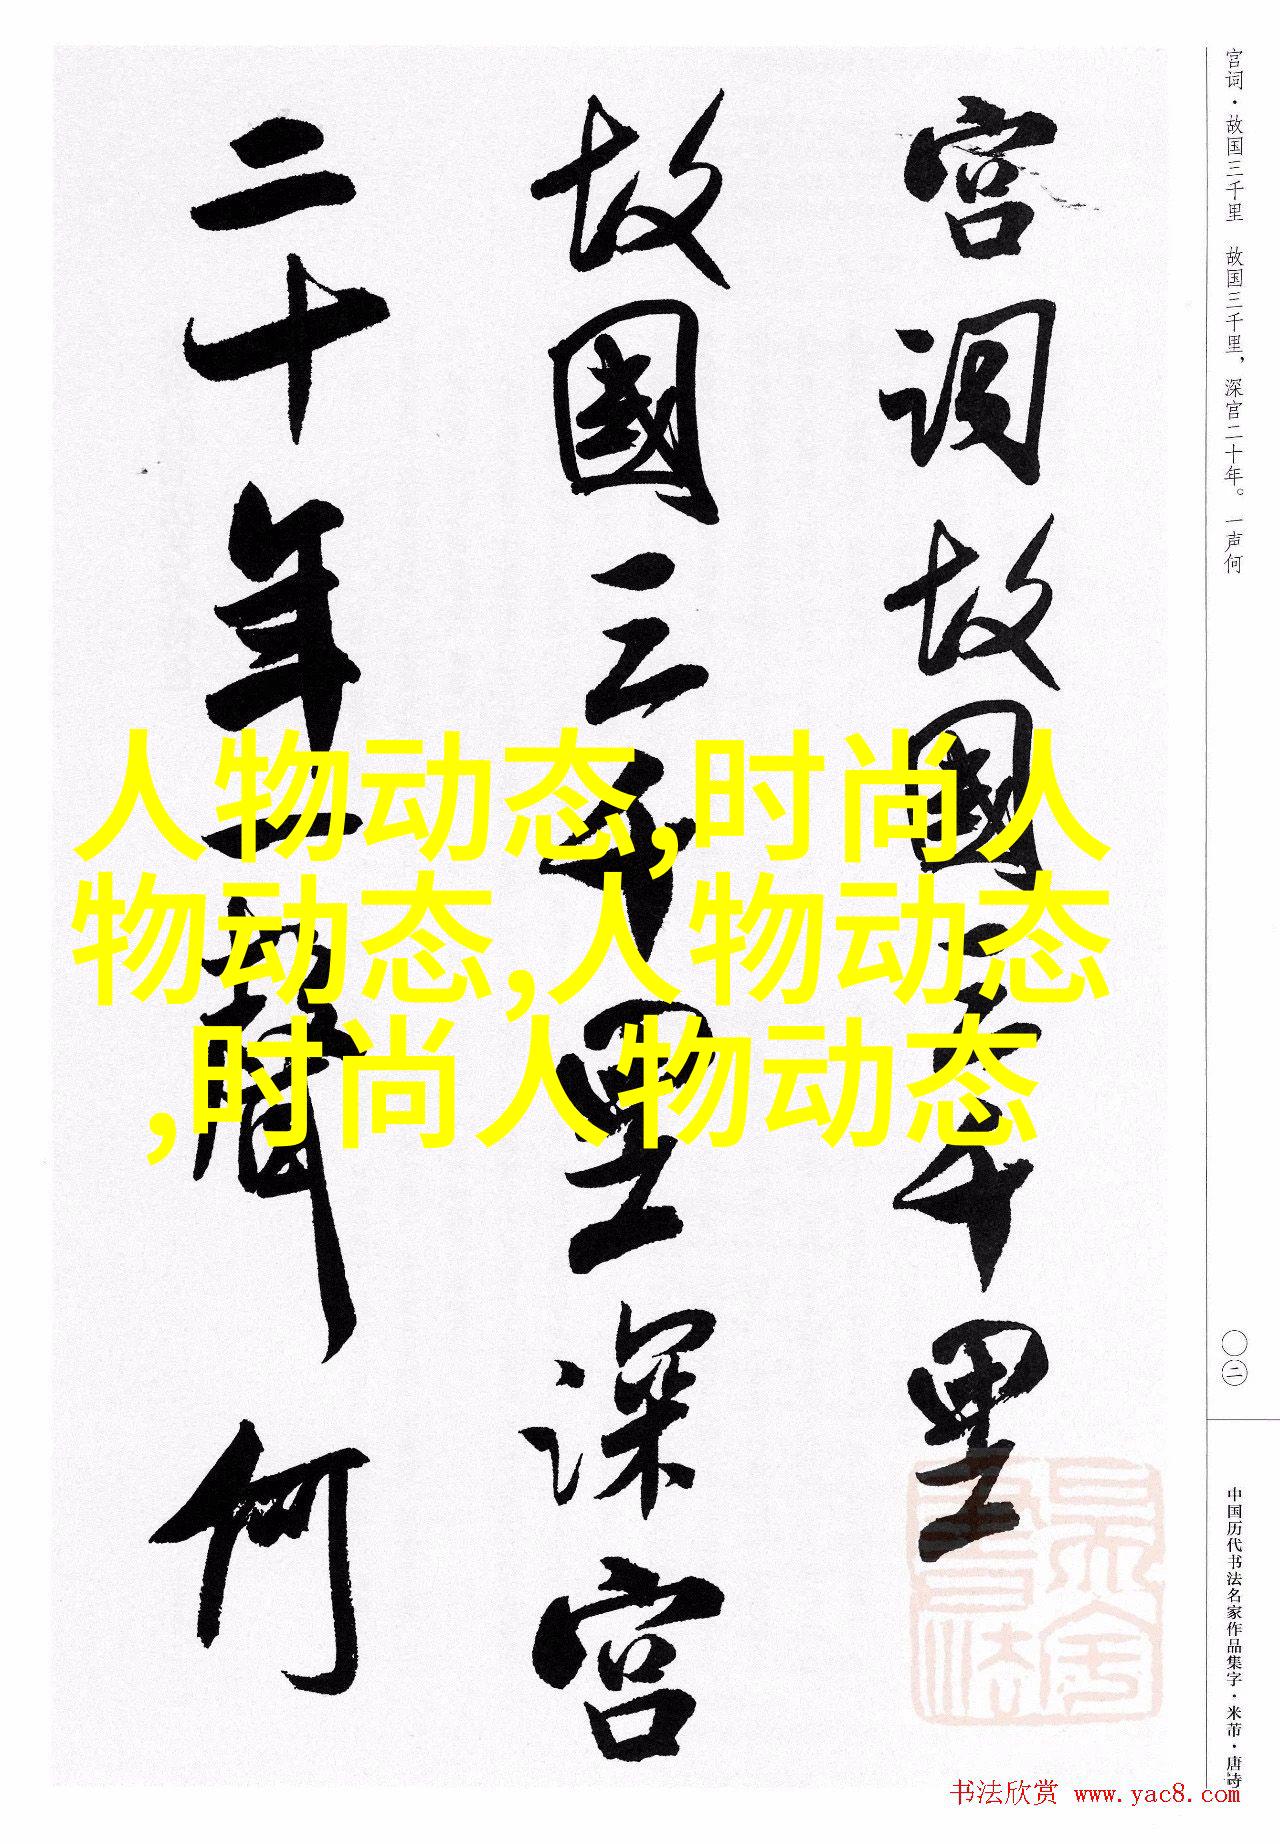 宫词故國三千里
故國三千里深宫
二十年一聲何
人物动态,时尚人
物动态,人物动态
,时尚人物动态
宫词·故国三千里 故国三千里，深宫二十年。一声何
〇二
中国历代书法名家作品集字·米芾·唐诗
书法欣赏 www.yac8.com